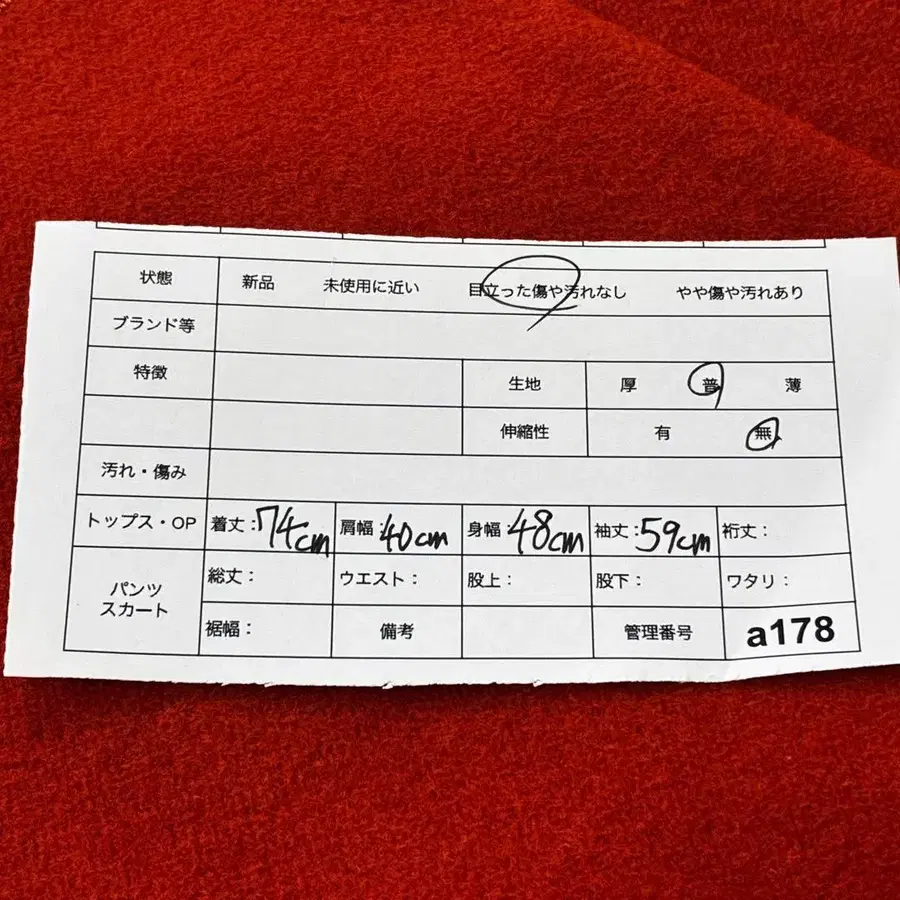 状態 新品 未使用に近い 目立った傷や汚れなし やや傷や汚れあり
ブランド等
特徴 生地 厚 普 薄
伸縮性 有 無
汚れ・傷み
トップス・OP 着丈:74cm 肩幅:40cm 身幅:48cm 袖丈:59cm 裄丈:
パンツ 総丈: ウエスト: 股上: 股下: ワタリ:
スカート
裾幅: 備考 管理番号 a178